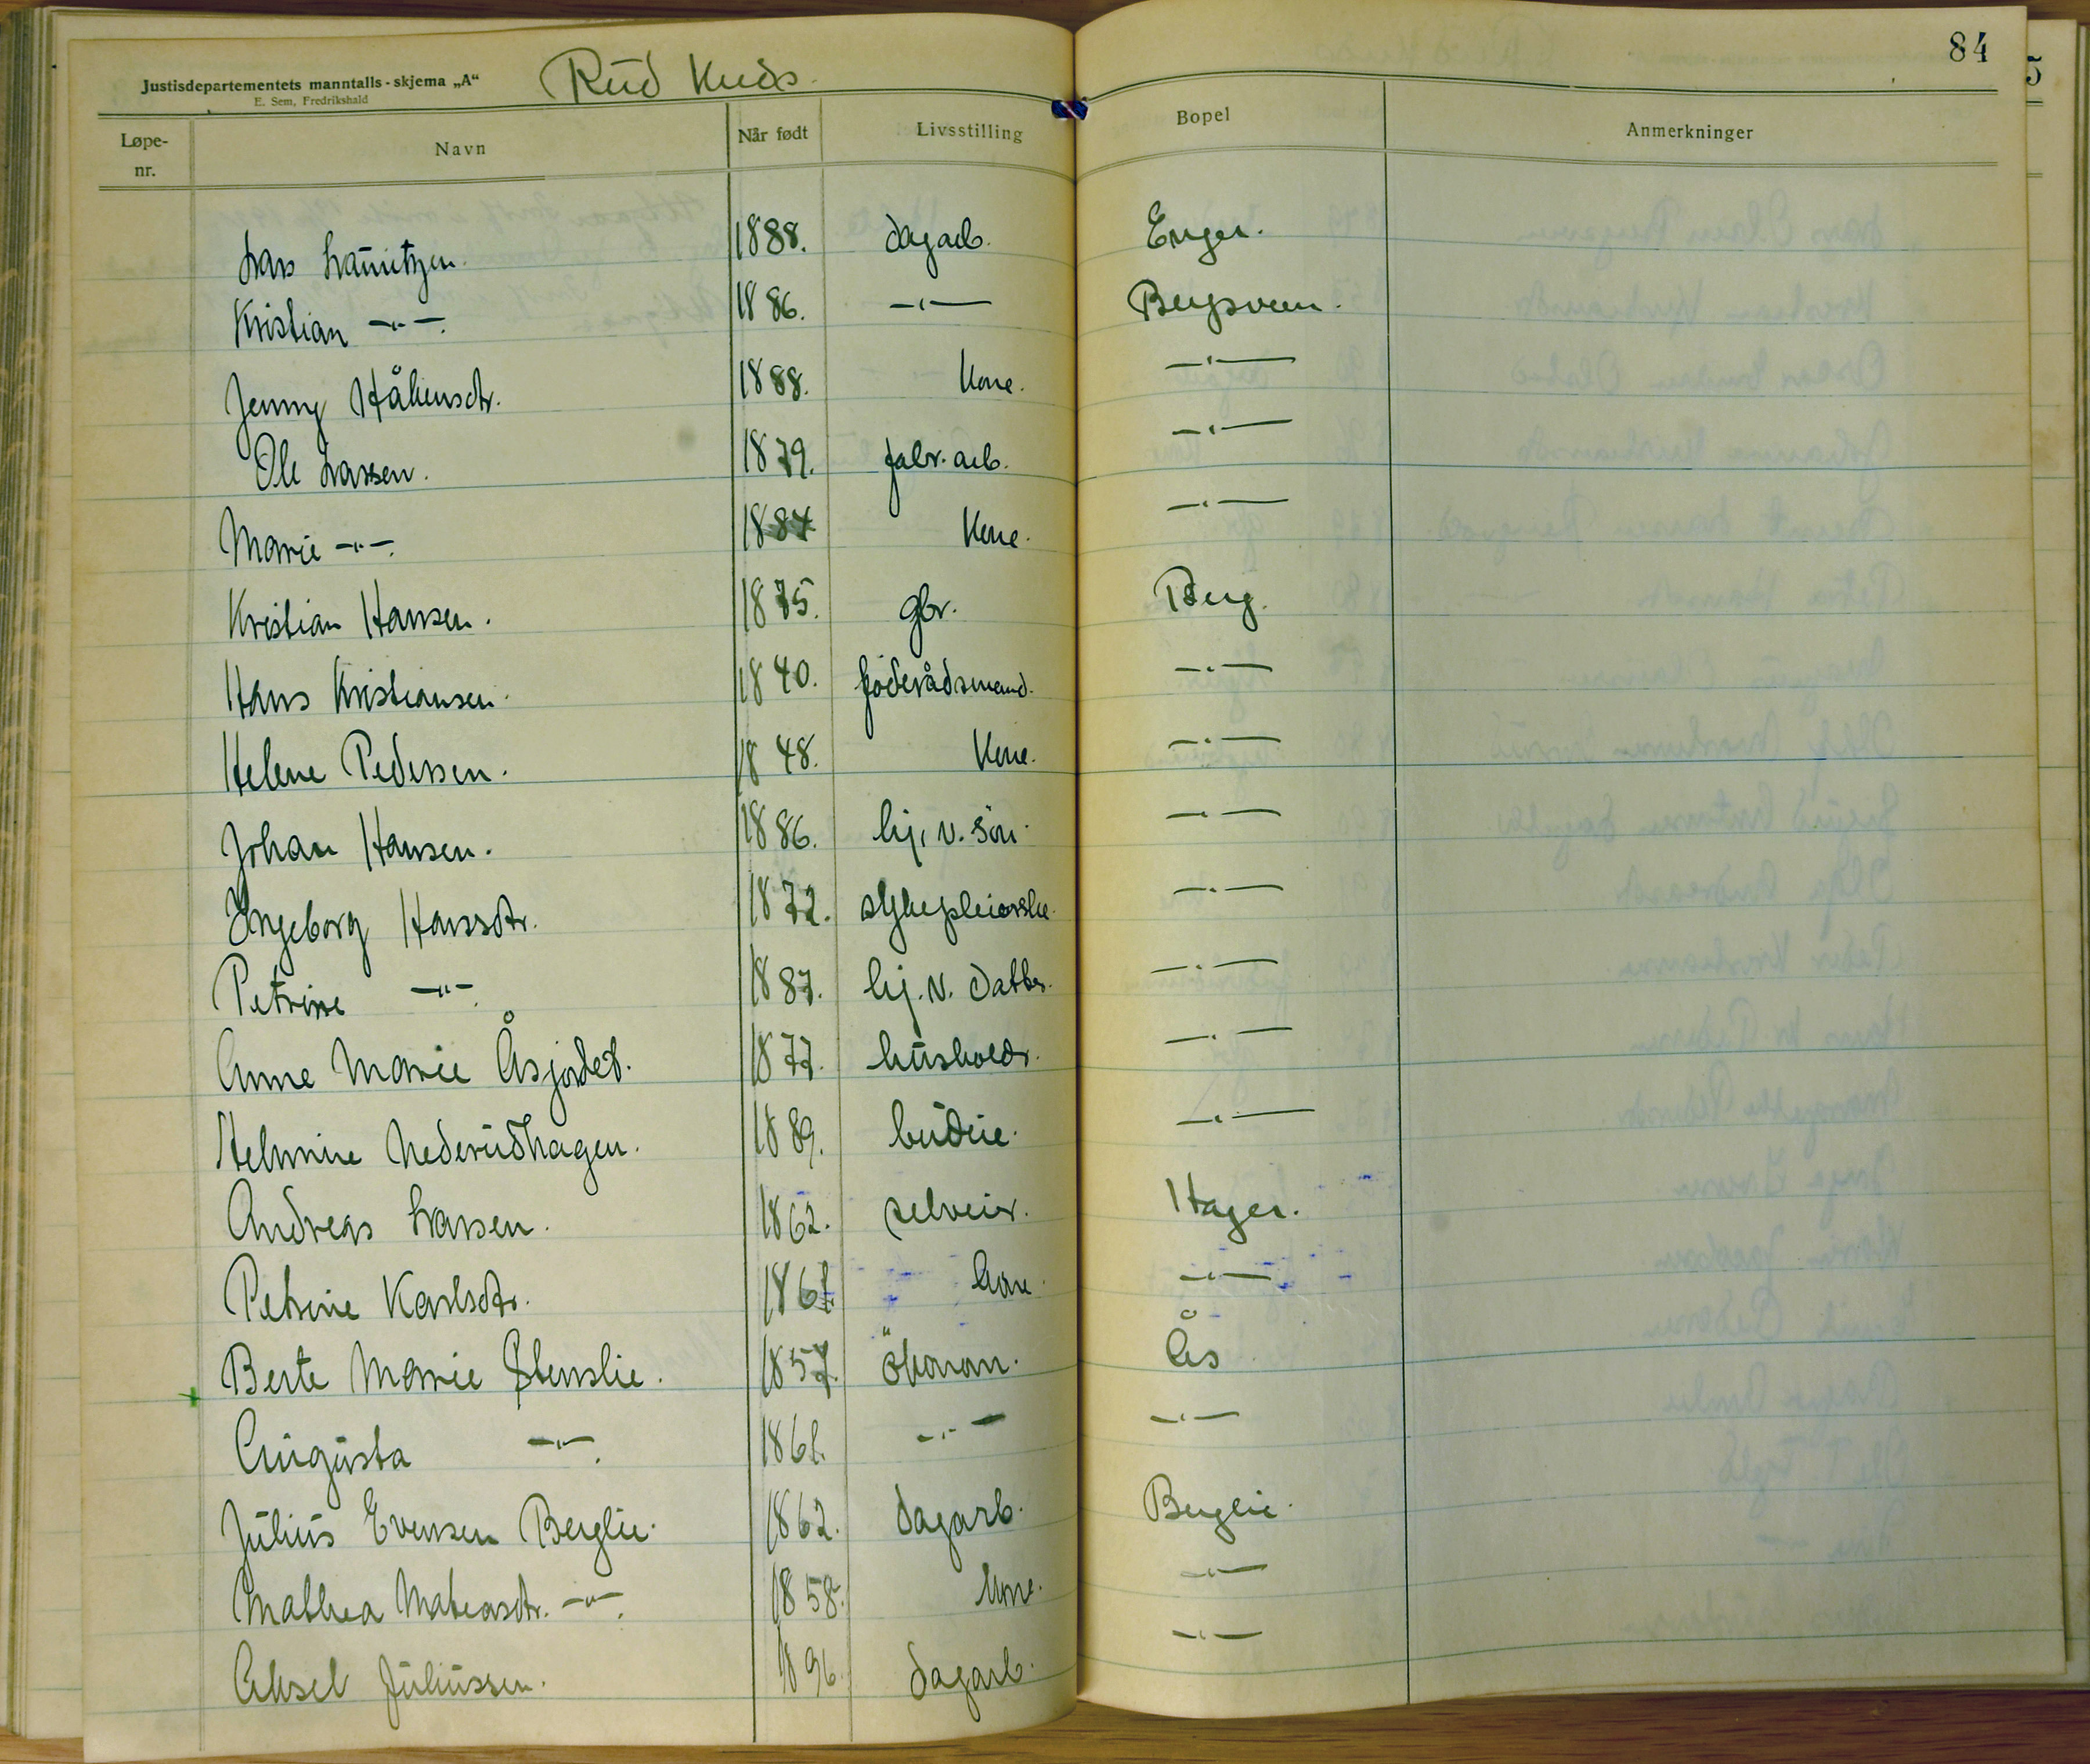 84
Justisdepartementets manntalls-skjema „A“ Rud Kreds.
E. Sem, Fredrikshald
Løpe-nr. Navn Når født Livsstilling Bopel Anmerkninger
Lars Lauritzen. 1888. dagarb. Enger.
Kristian —"—. 1886. —"— Bergsveen.
Jenny Håkensdtr. 1888. Kone. —"—
Ole Larssen. 1879. fabr. arb. —"—
Marie —"—. 1884 Kone. —"—
Kristian Hansen. 1875. gbr. Berg.
Hans Kristiansen. 1840. føderådsmand. —"—
Helene Pedersen. 1848. Kone. —"—
Johan Hansen. 1886. hj. v. sön. —"—
Ingeborg Hansdtr. 1872. sykepleierske. —"—
Petrine —"—. 1887. hj. v. datter. —"—
Anne Marie Åsjordet. 1877. husholdr. —"—
Helmine Nederudhagen. 1889. budeie. —"—
Andreas Larsen. 1862. selveier. Hager.
Petrine Karlsdtr. 186 kone. —"—
Berte Marie Stenslie. 1857. økonom. Ås
Augusta —"—. 1861. —"— —"—
Julius Evensen Berglie. 1862. dagarb. Berglie.
Mathea Mateasdtr. —"—. 1858. kone. —"—
Aksel Juliussen. 1896. dagarb. —"—